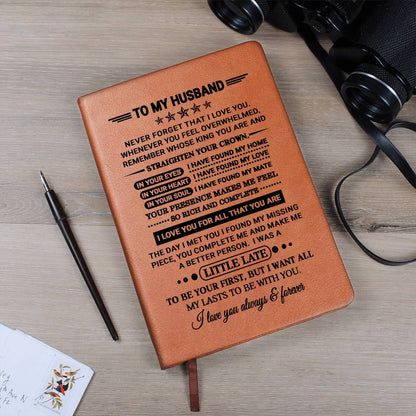 TO MY HUSBAND
NEVER FORGET THAT I LOVE YOU.
WHENEVER YOU FEEL OVERWHELMED,
REMEMBER WHOSE KING YOU ARE AND
STRAIGHTEN YOUR CROWN.
IN YOUR EYES I HAVE FOUND MY HOME
IN YOUR HEART I HAVE FOUND MY LOVE
IN YOUR SOUL I HAVE FOUND MY MATE
YOUR PRESENCE MAKES ME FEEL
SO RICH AND COMPLETE
I LOVE YOU FOR ALL THAT YOU ARE
THE DAY I MET YOU I FOUND MY MISSING
PIECE, YOU COMPLETE ME AND MAKE ME
A BETTER PERSON. I WAS A
LITTLE LATE
TO BE YOUR FIRST, BUT I WANT ALL
MY LASTS TO BE WITH YOU.
I love you always & forever